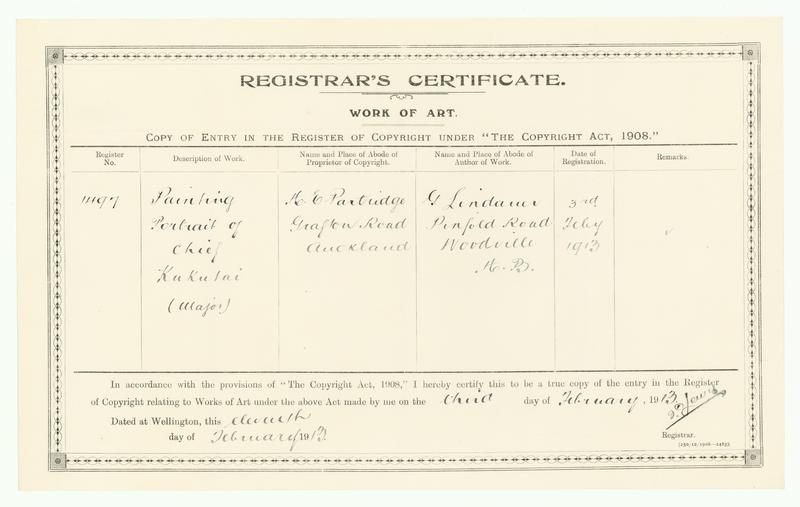 REGISTRAR'S CERTIFICATE.
WORK OF ART.
COPY OF ENTRY IN THE REGISTER OF COPYRIGHT UNDER "THE COPYRIGHT ACT, 1908."
Register No.
Description of Work.
Name and Place of Abode of Proprietor of Copyright.
Name and Place of Abode of Author of Work.
Date of Registration.
Remarks.
Painting
Portrait of
Chief
Kukutai
(Major)
H. E Partridge
Grafton Road
Auckland
G Lindauer
Pinfold Road
Woodville
H. B.
3rd
Feby
1913
In accordance with the provisions of "The Copyright Act, 1908," I hereby certify this to be a true copy of the entry in the Register
of Copyright relating to Works of Art under the above Act made by me on the third day of February, 1913
Dated at Wellington, this eleventh
day of February 1913.
Registrar.